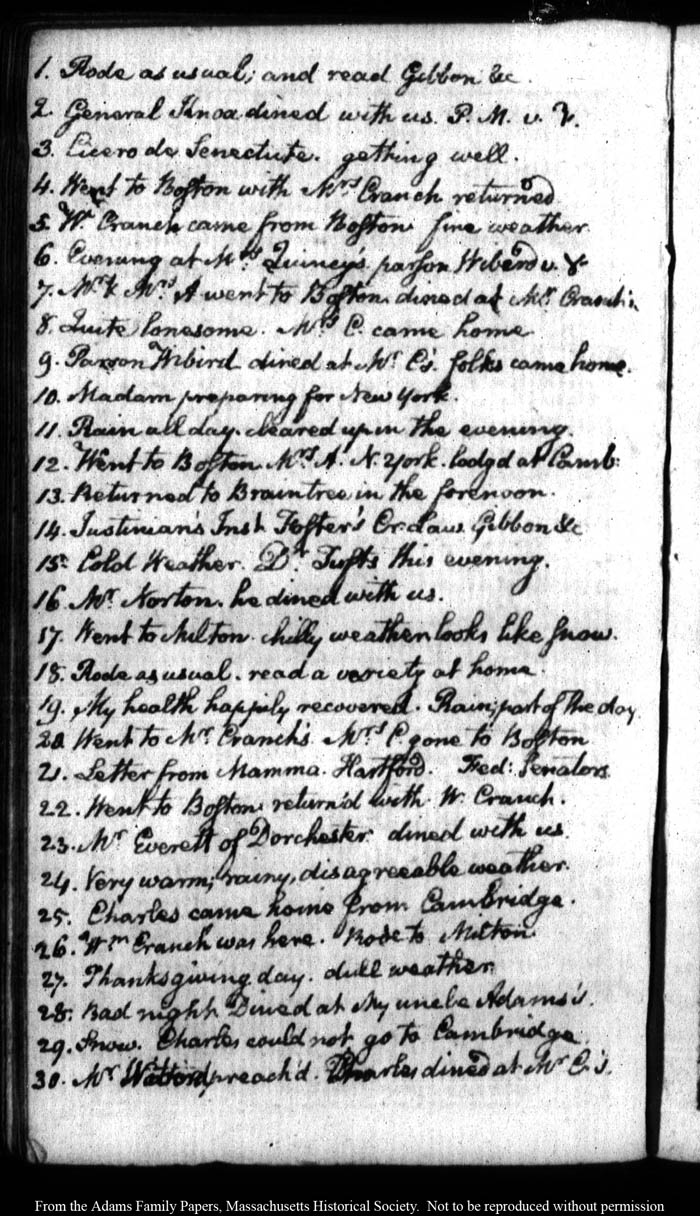 1. Rode as usual; and read Gibbon &c.
2. General Knox dined with us. P. M. v. &.
3. Cicero de Senectute. getting well.
4. Went to Boston with Mrs Cranch returned
5. Wm Cranch came from Boston. fine weather.
6. Evening at Mrs Quincy's. parson Wibird v. &
7. Mr & Mrs A went to Boston. dined at Mr Cranch's.
8. Quite lonesome. Mrs C. came home
9. Parson Wibird dined at Mr C's. folks came home.
10. Madam preparing for New York.
11. Rain all day. cleared up in the evening.
12. Went to Boston. Mrs A. N. York. lodgd at Camb:
13. Returned to Braintree in the forenoon.
14. Justinian's Inst. Foster's Cr. Law. Gibbon &c
15. Cold Weather. Dr Tufts this evening.
16. Mr Norton. he dined with us.
17. Went to Milton. chilly weather looks like snow.
18. Rode as usual. read a variety at home.
19. My health happily recovered. Rain; part of the day
20 Went to Mr Cranch's. Mrs C. gone to Boston
21. Letter from Mamma. Hartford. Fed: Senators.
22. Went to Boston. return'd with W. Cranch.
23. Mr Everett of Dorchester dined with us
24. Very warm; rainy, disagreeable weather.
25. Charles came home from Cambridge.
26. Wm Cranch was here. Rode to Milton
27. Thanksgiving day. dull weather.
28. Bad night. Dined at My uncle Adams's.
29. Snow. Charles could not go to Cambridge.
30. Mr preach'd. Charles dined at Mr C.'s.
From the Adams Family Papers, Massachusetts Historical Society. Not to be reproduced without permission